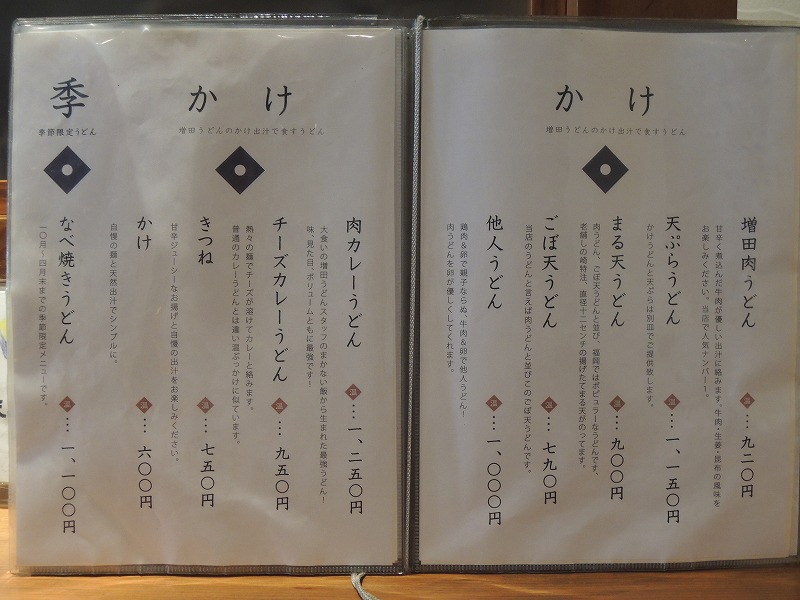 かけ
増田うどんのかけ出汁で食すうどん
増田肉うどん
温 … 九二〇円
甘辛く煮込んだ牛肉が優しい出汁に絡みます。牛肉・生姜・昆布の風味を
お楽しみください。当店で人気ナンバー1。
天ぷらうどん
温 … 一、一五〇円
かけうどんと天ぷらは別皿でご提供致します。
まる天うどん
温 … 九〇〇円
肉うどん、ごぼ天うどんと並び、福岡ではポピュラーなうどんです、
老舗しの崎特注、直径十二センチの揚げたてまる天がのってます。
ごぼ天うどん
温 … 七九〇円
当店のうどんと言えば肉うどんと並びこのごぼ天うどんです。
他人うどん
温 … 一、〇〇〇円
鶏肉&卵で親子ならぬ、牛肉&卵で他人うどん!
肉うどんを卵が優しくしてくれます。
かけ
増田うどんのかけ出汁で食すうどん
肉カレーうどん
温 … 一、二五〇円
大食いの増田うどんスタッフのまかない飯から生まれた最強うどん!
味、見た目、ボリュームともに最強です!
チーズカレーうどん
温 … 九五〇円
熱々の麺でチーズが溶けてカレーと絡みます。
普通のカレーうどんとは違い温ぶっかけに似ています。
きつね
温 … 七五〇円
甘辛ジューシーなお揚げと自慢の出汁をお楽しみください。
かけ
温 … 六〇〇円
自慢の麺と天然出汁でシンプルに。
季
季節限定うどん
なべ焼きうどん
季 … 一、一〇〇円
一〇月~四月末までの季節限定メニューです。